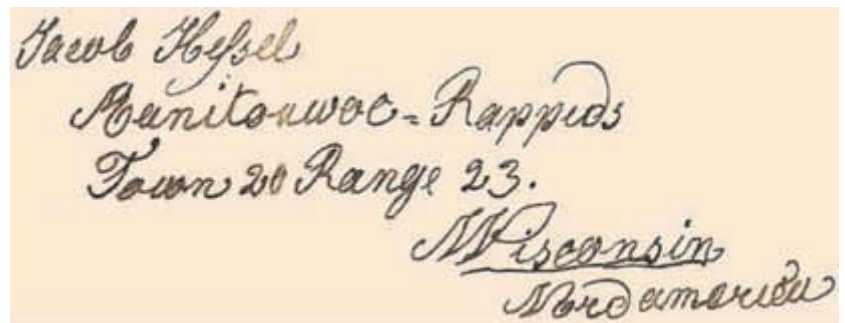 Jacob Heßel
Manitouwoc = Rappids
Town 20 Range 23.
Wisconsin
Nordamerica